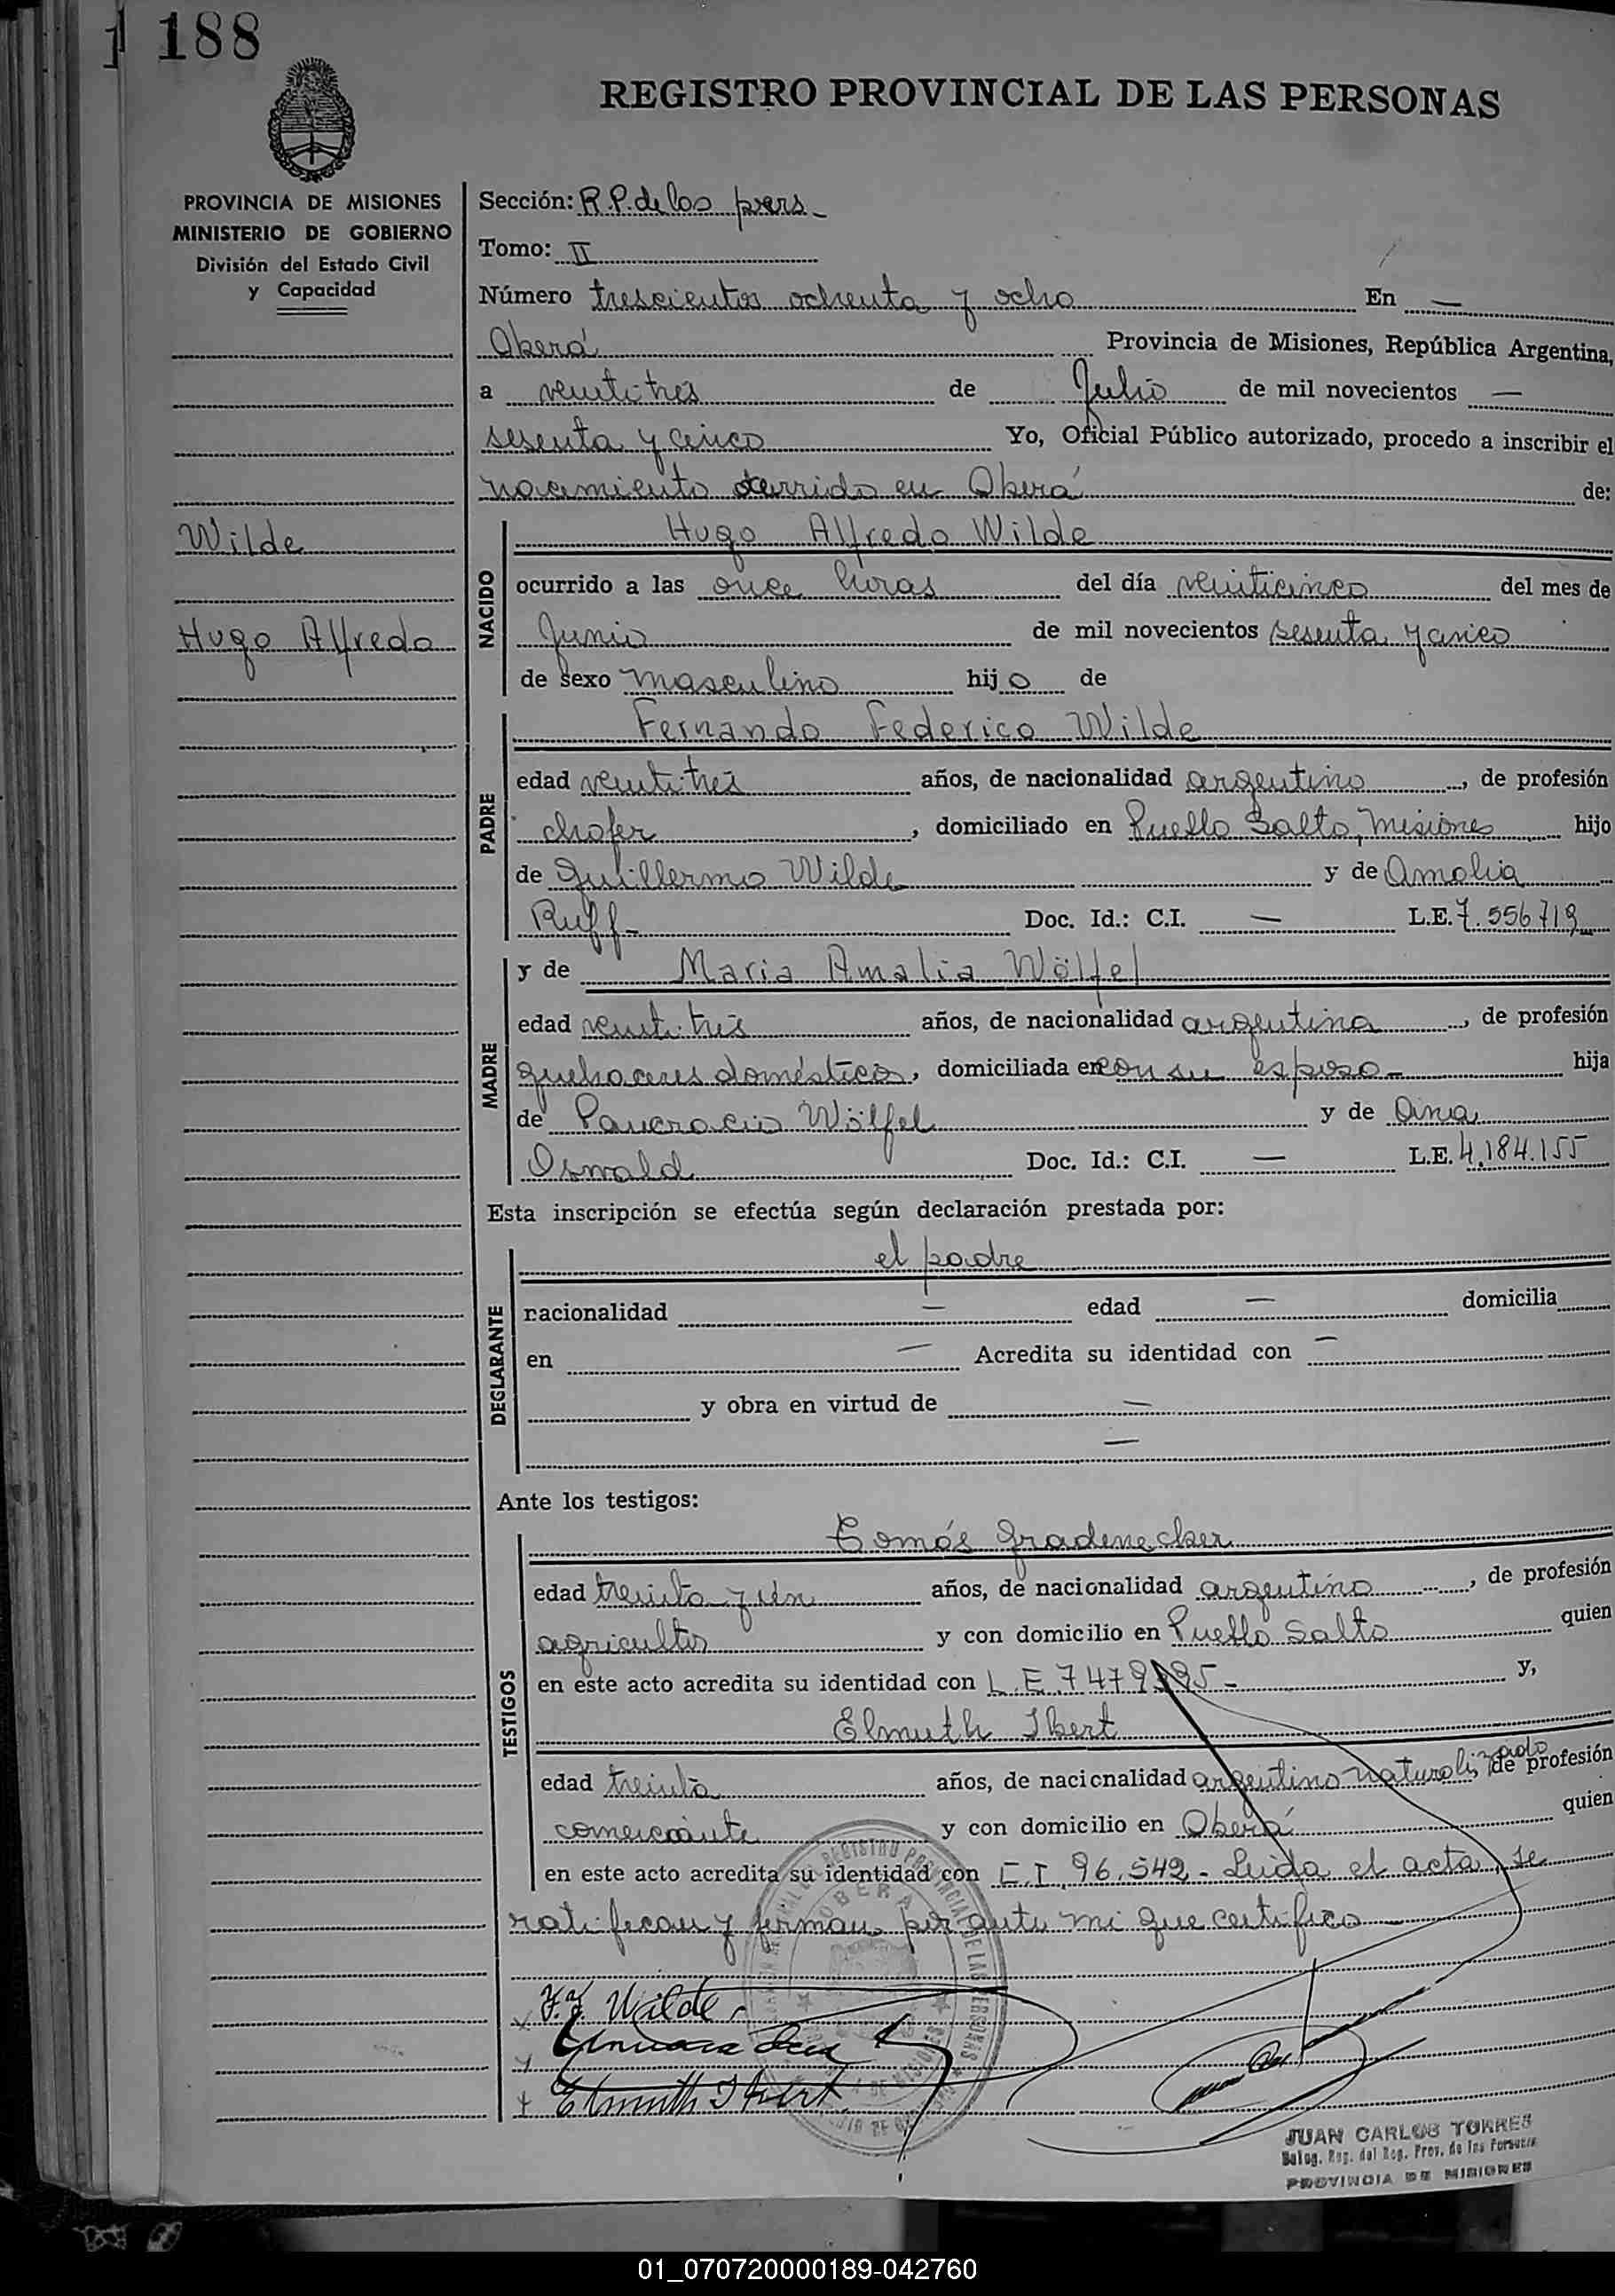 188
REGISTRO PROVINCIAL DE LAS PERSONAS
PROVINCIA DE MISIONES
MINISTERIO DE GOBIERNO
División del Estado Civil
y Capacidad
Sección: R.P. de las pers.
Tomo: II
Número trescientos ochenta y ocho En —
Oberá Provincia de Misiones, República Argentina,
a veintitrés de Julio de mil novecientos —
sesenta y cinco Yo, Oficial Público autorizado, procedo a inscribir el
nacimiento ocurrido en Oberá de:
Wilde
Hugo Alfredo
NACIDO
Hugo Alfredo Wilde
ocurrido a las once horas del día veinticinco del mes de
Junio de mil novecientos sesenta y cinco
de sexo masculino hijo de
PADRE
Fernando Federico Wilde
edad veintitrés años, de nacionalidad argentino, de profesión
chofer, domiciliado en Puello Salto, Misiones hijo
de Guillermo Wilde y de Amalia
Ruff- Doc. Id.: C.I. — L.E. 7.556719
MADRE
y de Maria Amalia Wölfel
edad veintitrés años, de nacionalidad argentina, de profesión
quehaceres domésticos, domiciliada en con su esposo- hija
de Pancracio Wölfel y de Ana
Oswald Doc. Id.: C.I. — L.E. 4.184.155
Esta inscripción se efectúa según declaración prestada por:
DECLARANTE
el padre
nacionalidad — edad — domicilia
en — Acredita su identidad con —
y obra en virtud de —
—
Ante los testigos:
TESTIGOS
Tomás Gradenecker
edad treinta y un años, de nacionalidad argentino, de profesión
agricultor y con domicilio en Puello Salto quien
en este acto acredita su identidad con L.E. y,
Elmuth Ibert
edad treinta años, de nacionalidad argentino naturalizado, de profesión
comerciante y con domicilio en Oberá quien
en este acto acredita su identidad con C.I. 96.542- Leida el acta, se
ratifican y firman por ante mi que certifico
F.F. Wilde
Elmuth Ibert
JUAN CARLOS TORRES
Deleg. Reg. del Reg. Prov. de las Personas
PROVINCIA DE MISIONES
01_070720000189-042760